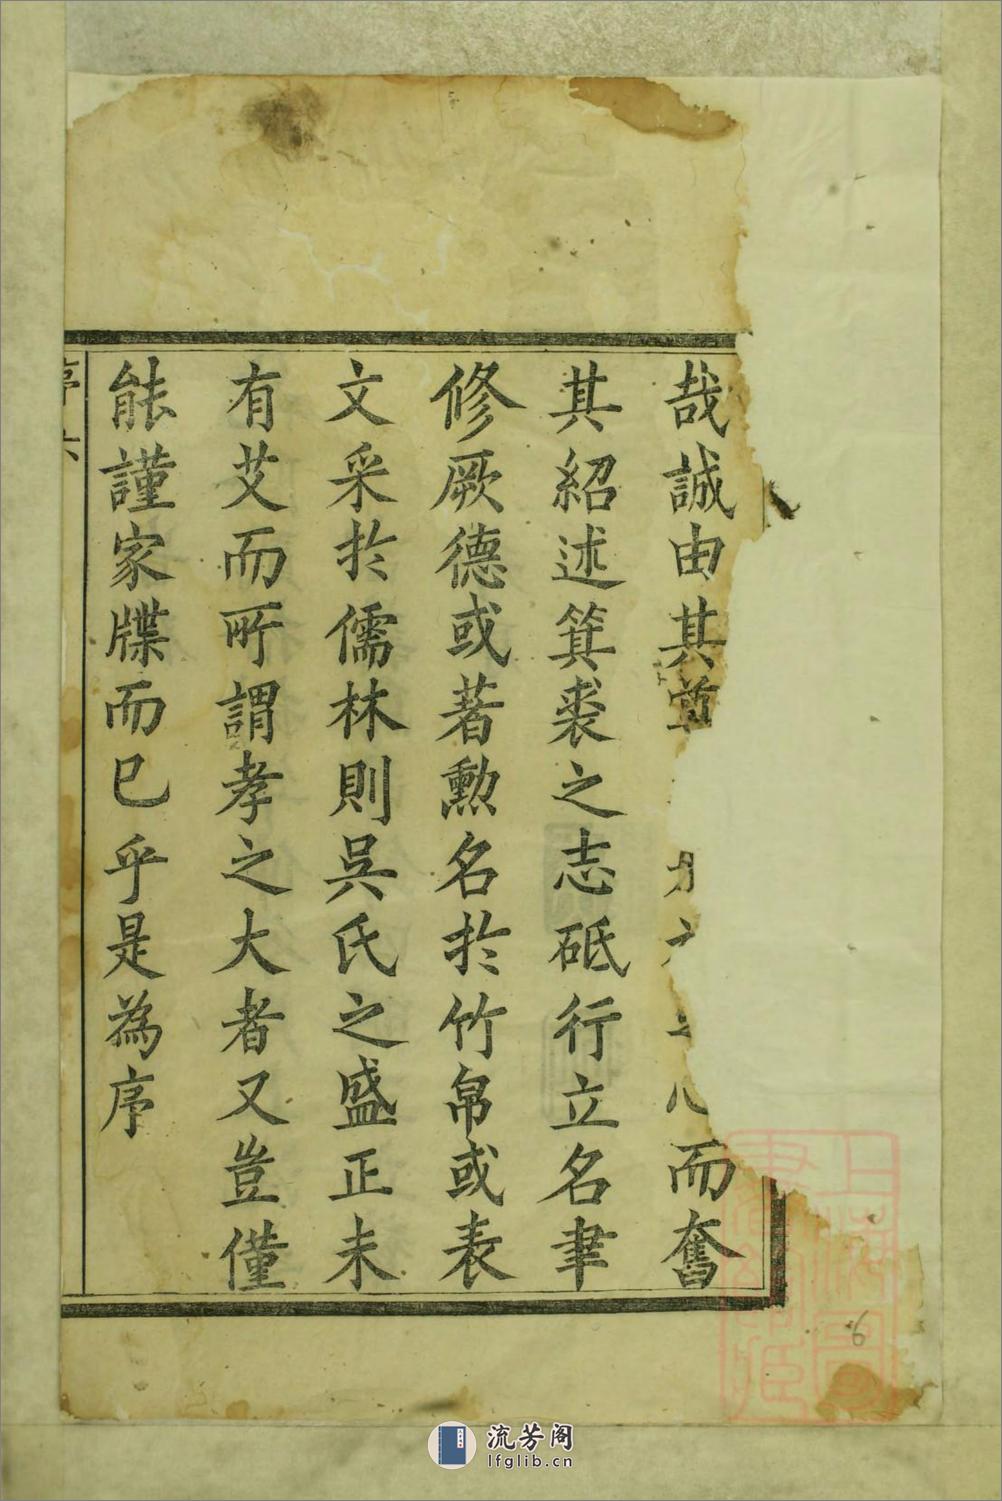 哉誠由其尊而奮
其紹述箕裘之志砥行立名聿
修厥德或著勲名扵竹帛或表
文采扵儒林則吳氏之盛正未
有艾而所謂孝之大者又豈僅
能謹家牒而已乎是為序
序 六
上海圖書館藏
6
流芳阁
lfglib.cn